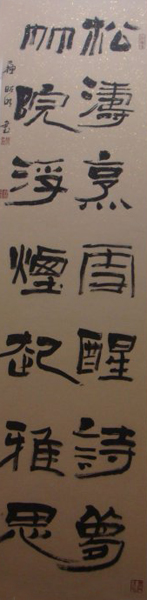 松濤烹雪醒詩夢
竹院浮煙起雅思